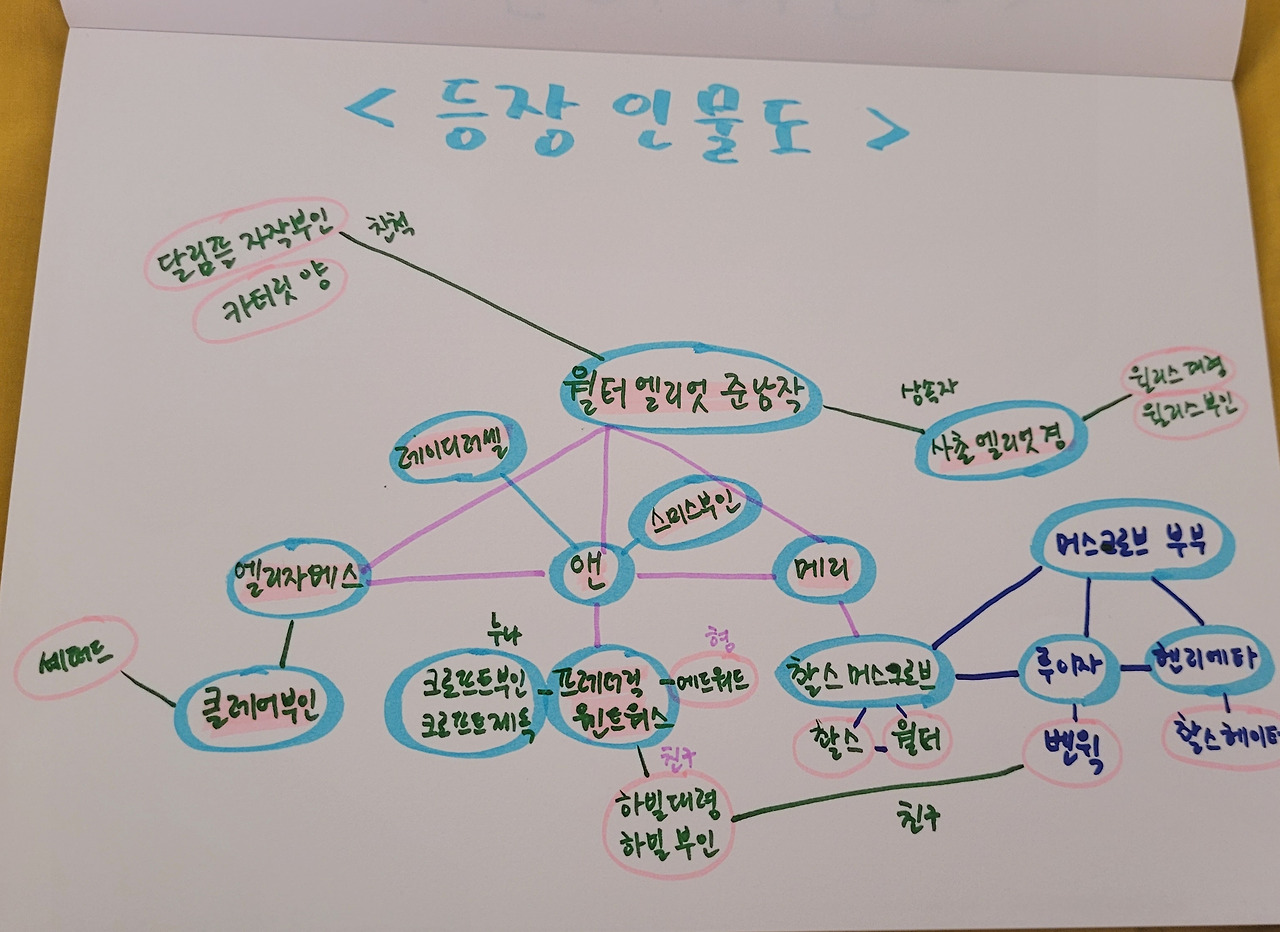 < 등장 인물도 >
달림플 자작부인
친척
카터릿 양
월터 엘리엇 준남작
상속자
윌리스 대령
윌리스부인
사촌 엘리엇 경
레이디러셀
스미스부인
머스크로브 부부
엘리자베스
앤
메리
누나
형
셰퍼드
클레어부인
크로프트부인
크로프트제독
프레더릭
웬트워스
에드워드
찰스 머스크로브
루이자
헨리에타
찰스
월터
벤윅
찰스헤이터
친구
하빌대령
하빌 부인
친구